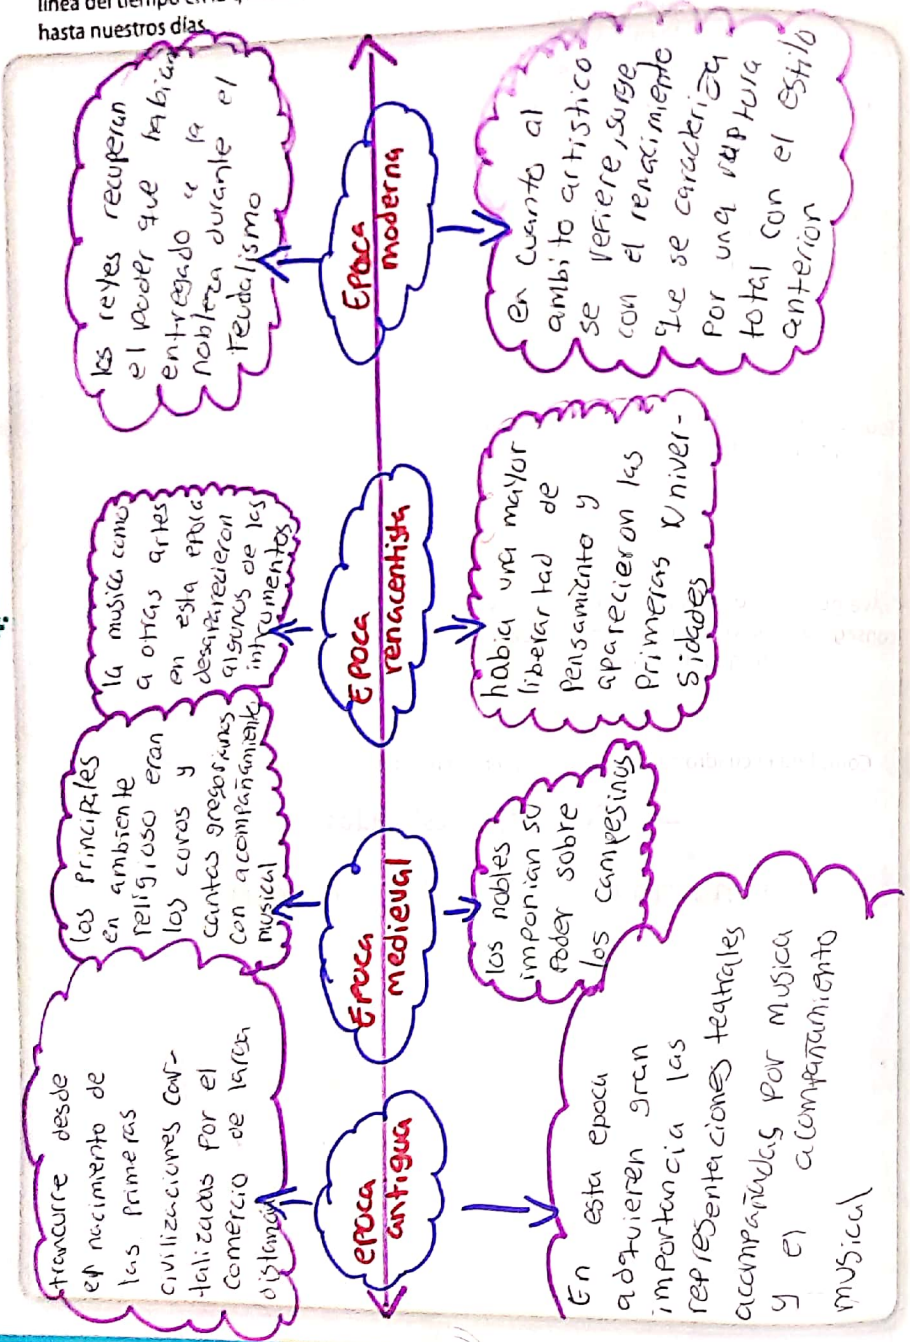 hasta nuestros días
trancurre desde
el nacimiento de
las primeras
civilizaciones cav-
talizadas por el
comercio de larga
distancia
epoca
antigua
En esta epoca
adquieren gran
importancia las
representaciones teatrales
accmpañadas por musica
y el acompañamiento
musical
los principales
en ambiente
religioso eran
los coros y
cantos gregorianos
con acompañamiento
musical
Epoca
medieval
los nobles
imponian su
Poder sobre
los campesinos
la musica como
a otras artes
en esta epoca
desaparecieron
algunos de los
intrumentos
Epoca
renacentista
habia una mayor
liberartad de
Pensamiento y
aparecieron las
Primeras Univer-
sidades
los reyes recuperan
el poder que habian
entregado a la
nobleza durante el
feudalismo
Epoca
moderna
en cuanto al
ambito artistico
se refiere, surge
con el renacimiento
que se caracteriza
Por una ruptura
total con el estilo
anterior